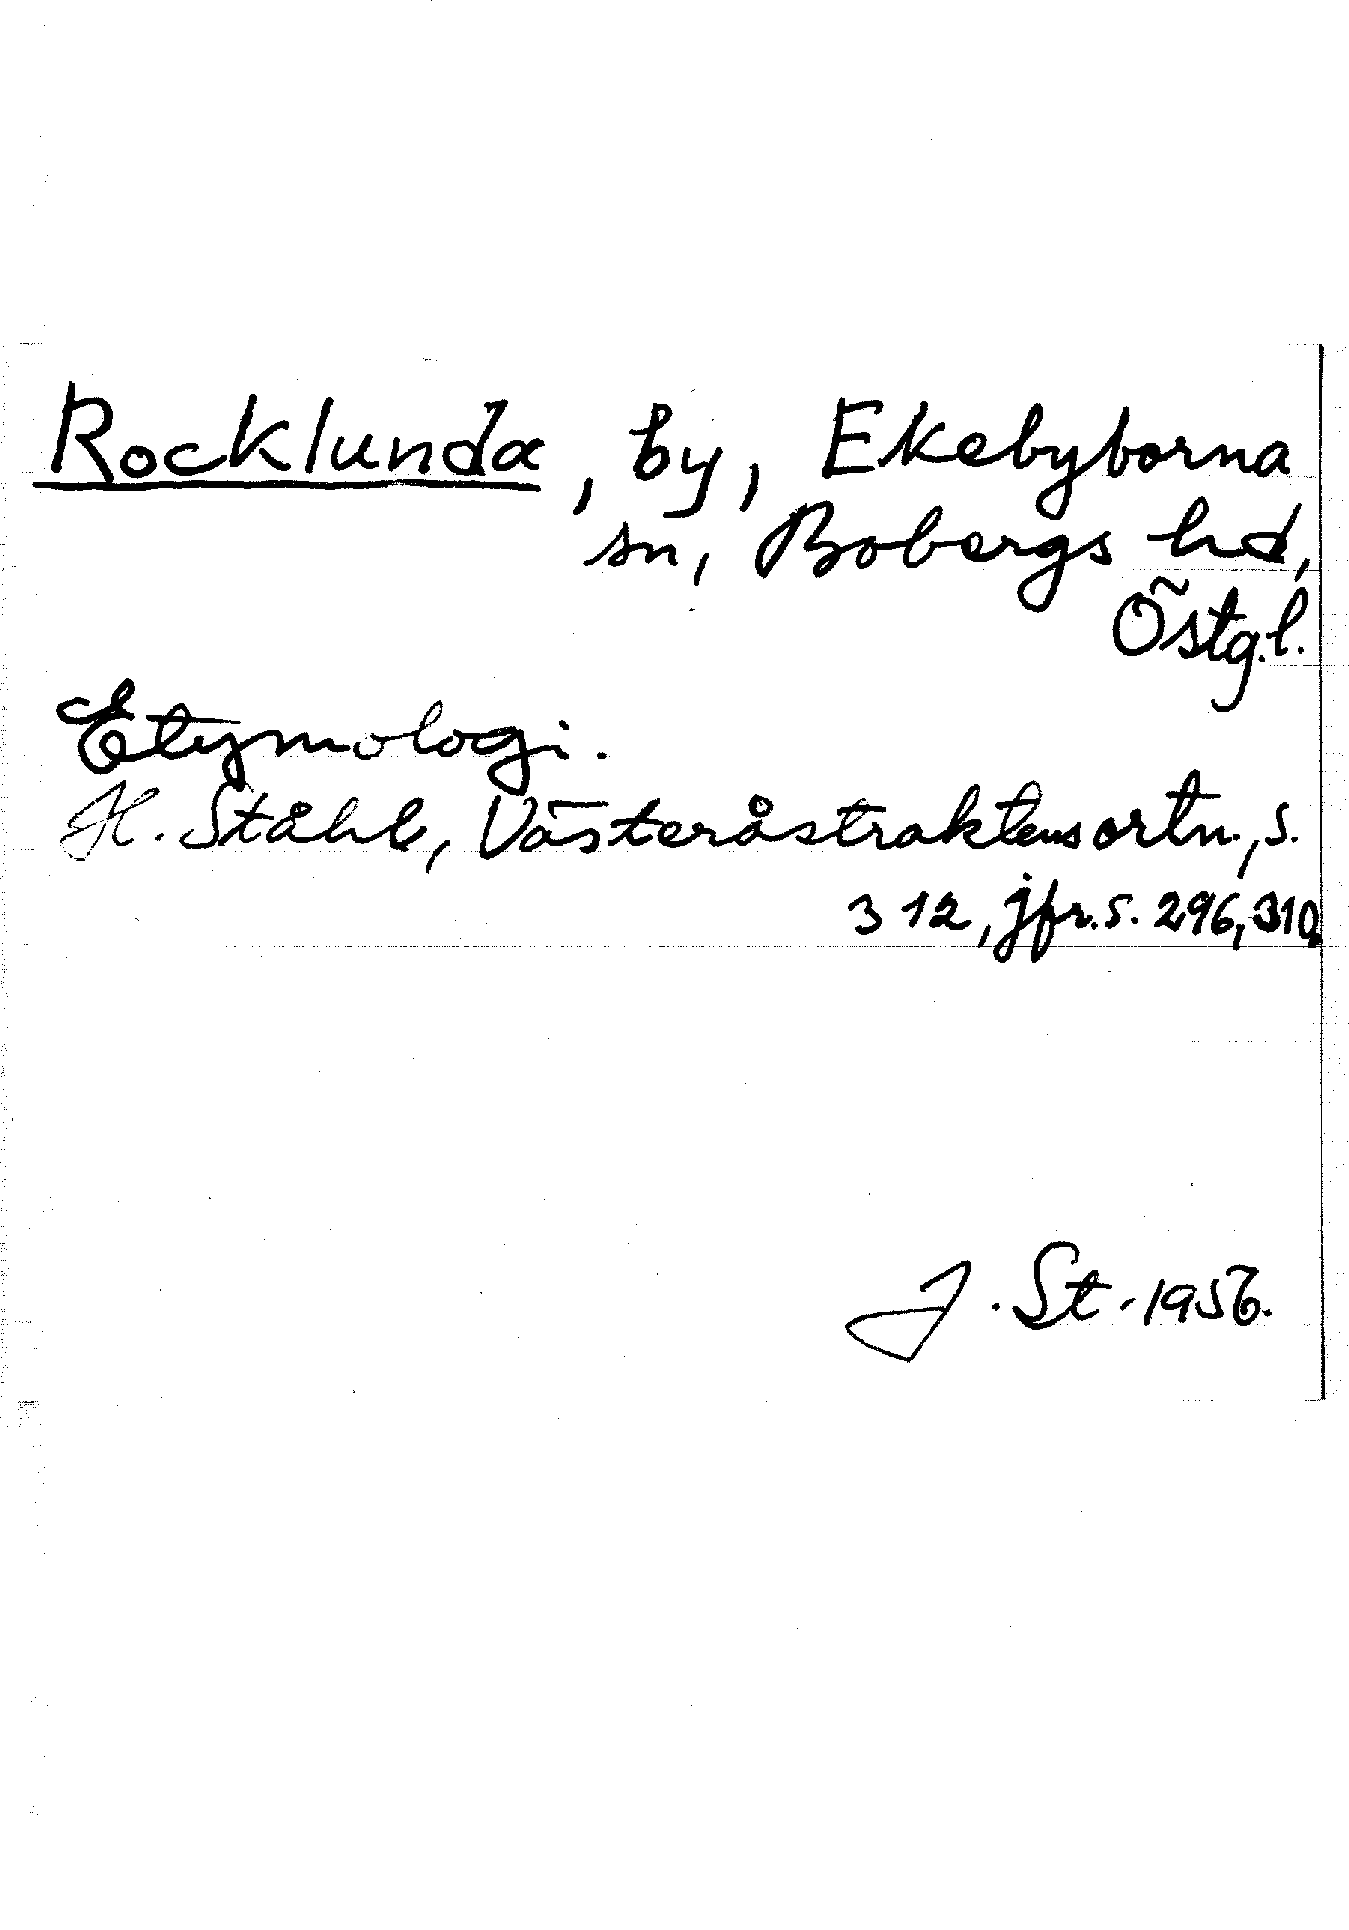 Rocklunda, by, Ekebyborna
sn, Bobergs hd,
Östg.l.
Etymologi.
H. Ståhl, Västeråstraktens ortn., s.
312, jfr. s. 296, 310.
J. St. 1956.